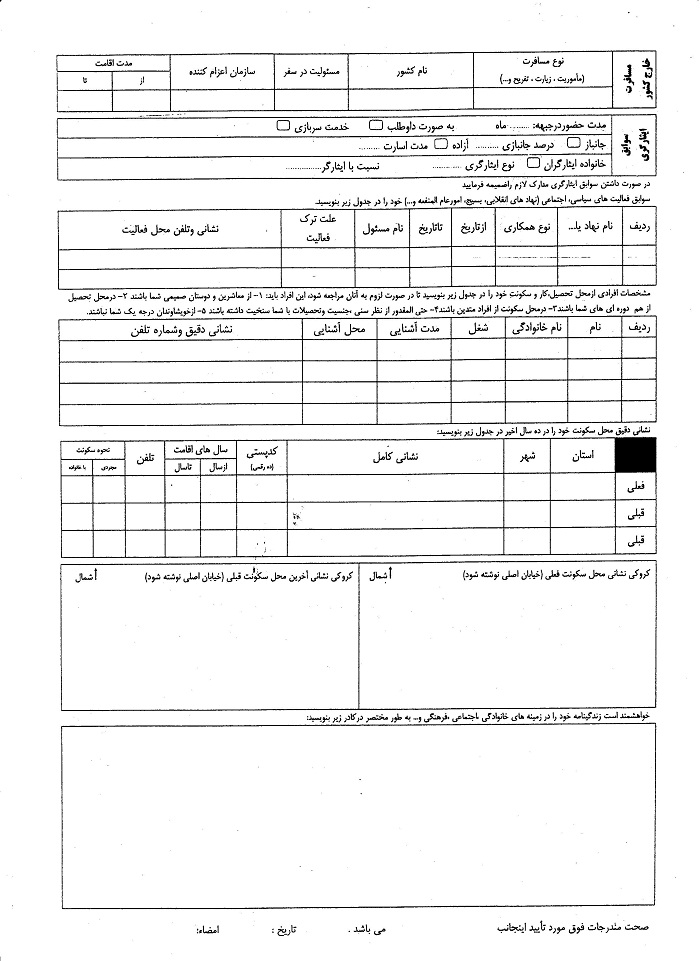 مسافرت خارج کشور
نوع مسافرت
(مأموریت ، زیارت ، تفریح و...)
نام کشور
مسئولیت در سفر
سازمان اعزام کننده
مدت اقامت
از
تا
سوابق ایثارگری
مدت حضوردرجبهه: ........ ماه به صورت داوطلب خدمت سربازی
جانباز درصد جانبازی .......... آزاده مدت اسارت ..........
خانواده ایثارگران نوع ایثارگری ............ نسبت با ایثارگر................
در صورت داشتن سوابق ایثارگری مدارک لازم راضمیمه فرمایید
سوابق فعالیت های سیاسی، اجتماعی (نهاد های انقلابی، بسیج، امورعام المنفعه و...) خود را در جدول زیر بنویسید.
ردیف نام نهاد یا... نوع همکاری ازتاریخ تاتاریخ نام مسئول علت ترک فعالیت نشانی وتلفن محل فعالیت
مشخصات افرادی ازمحل تحصیل،کار و سکونت خود را در جدول زیر بنویسید تا در صورت لزوم به آنان مراجعه شود، این افراد باید: ۱- از معاشرین و دوستان صمیمی شما باشند ۲- درمحل تحصیل
از هم دوره ای های شما باشند۳- درمحل سکونت از افراد متدین باشند۴- حتی المقدور از نظر سنی ،جنسیت وتحصیلات با شما سنخیت داشته باشند ۵- ازخویشاوندان درجه یک شما نباشند.
ردیف نام نام خانوادگی شغل مدت آشنایی محل آشنایی نشانی دقیق وشماره تلفن
نشانی دقیق محل سکونت خود را در ده سال اخیر در جدول زیر بنویسید:
استان شهر نشانی کامل کدپستی (ده رقمی) سال های اقامت تلفن نحوه سکونت
ازسال تاسال مجردی با خانواده
فعلی
قبلی
قبلی
کروکی نشانی محل سکونت فعلی (خیابان اصلی نوشته شود) شمال
کروکی نشانی آخرین محل سکونت قبلی (خیابان اصلی نوشته شود) شمال
خواهشمند است زندگینامه خود را در زمینه های خانوادگی ،اجتماعی ،فرهنگی و... به طور مختصر درکادر زیر بنویسید:
صحت مندرجات فوق مورد تأیید اینجانب می باشد . تاریخ : امضاء: